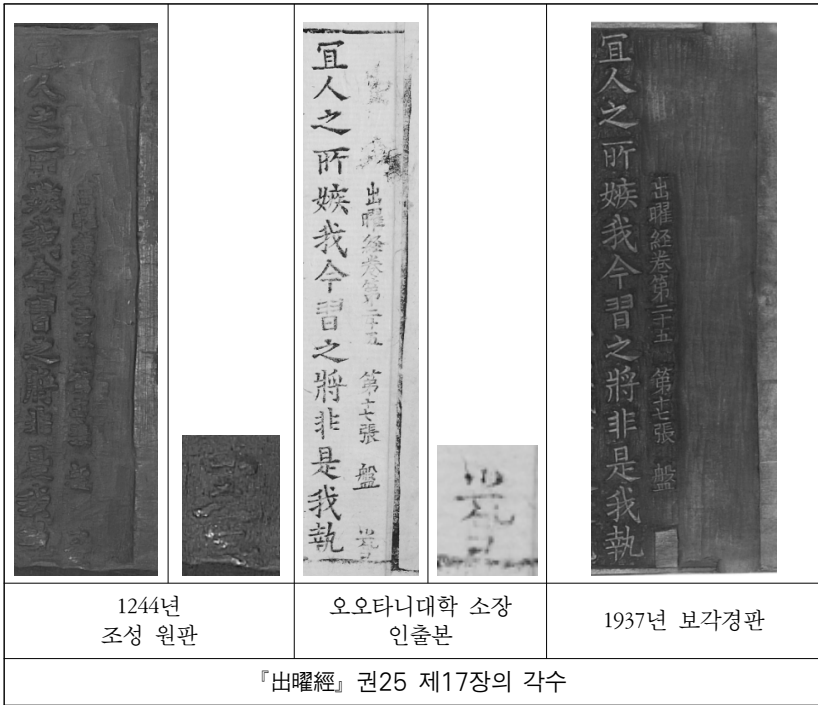 冝人之所嫉我今習之將非是我執
出曜経卷第二十五 第十七張 盤
冝人之所嫉我今習之將非是我執
出曜経卷第二十五 第十七張 盤
冝人之所嫉我今習之將非是我執
1244년
조성 원판
오오타니대학 소장
인출본
1937년 보각경판
『出曜經』 권25 제17장의 각수